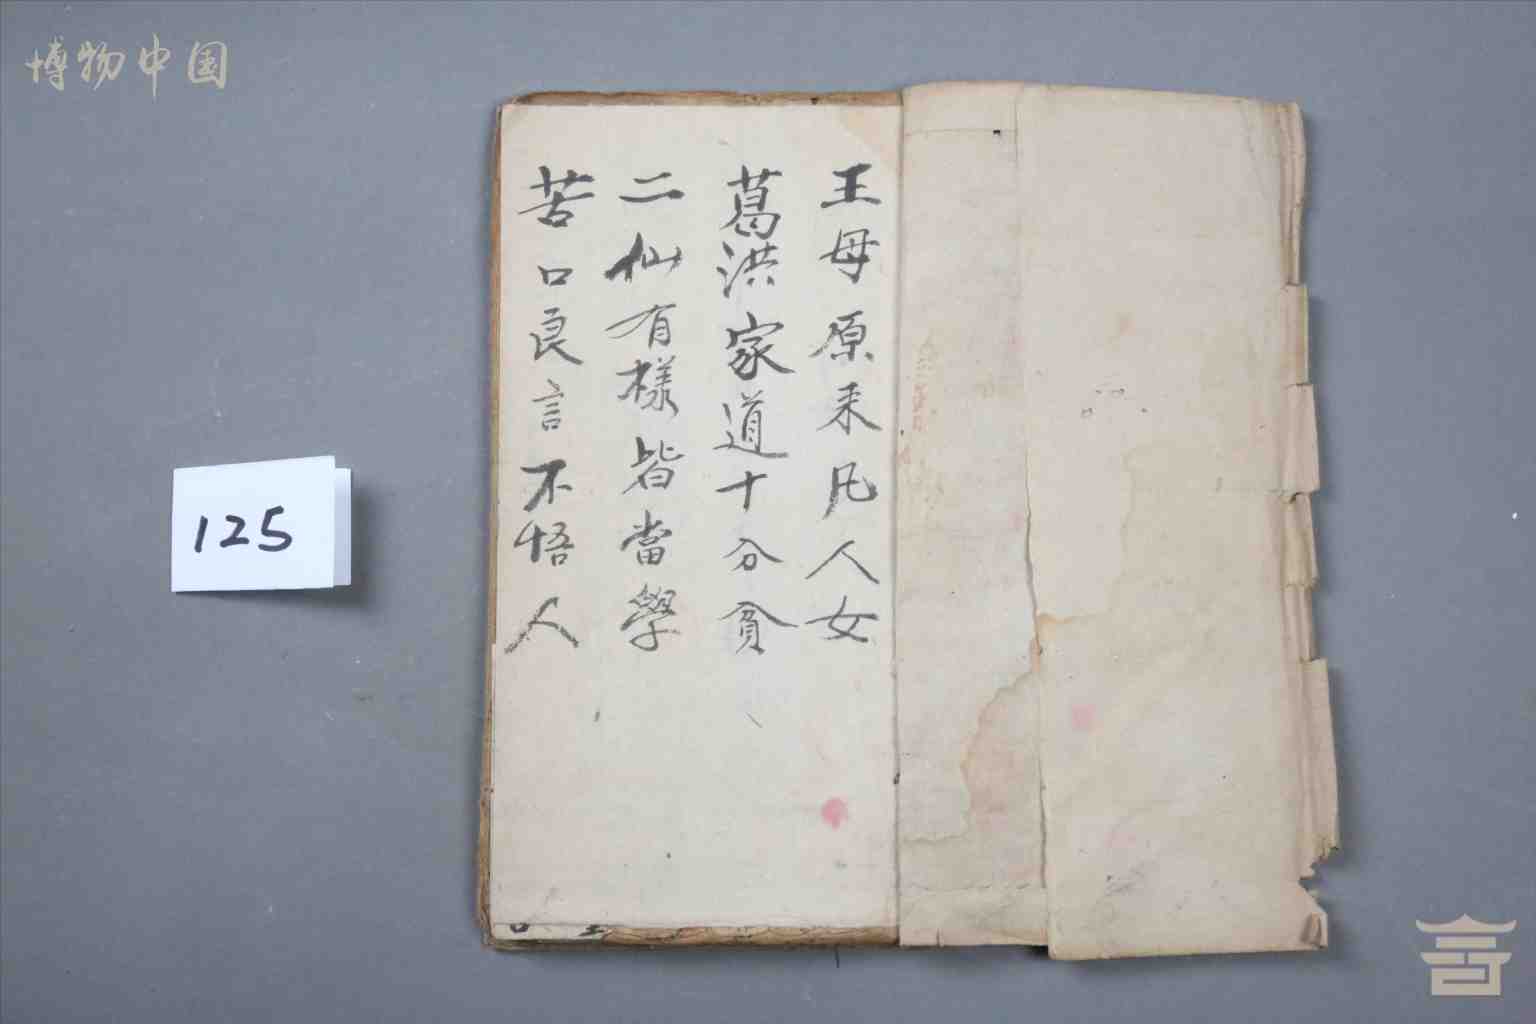 博物中国
王母原来凡人女
葛洪家道十分貧
二仙有樣皆當學
苦口良言不悟人
125